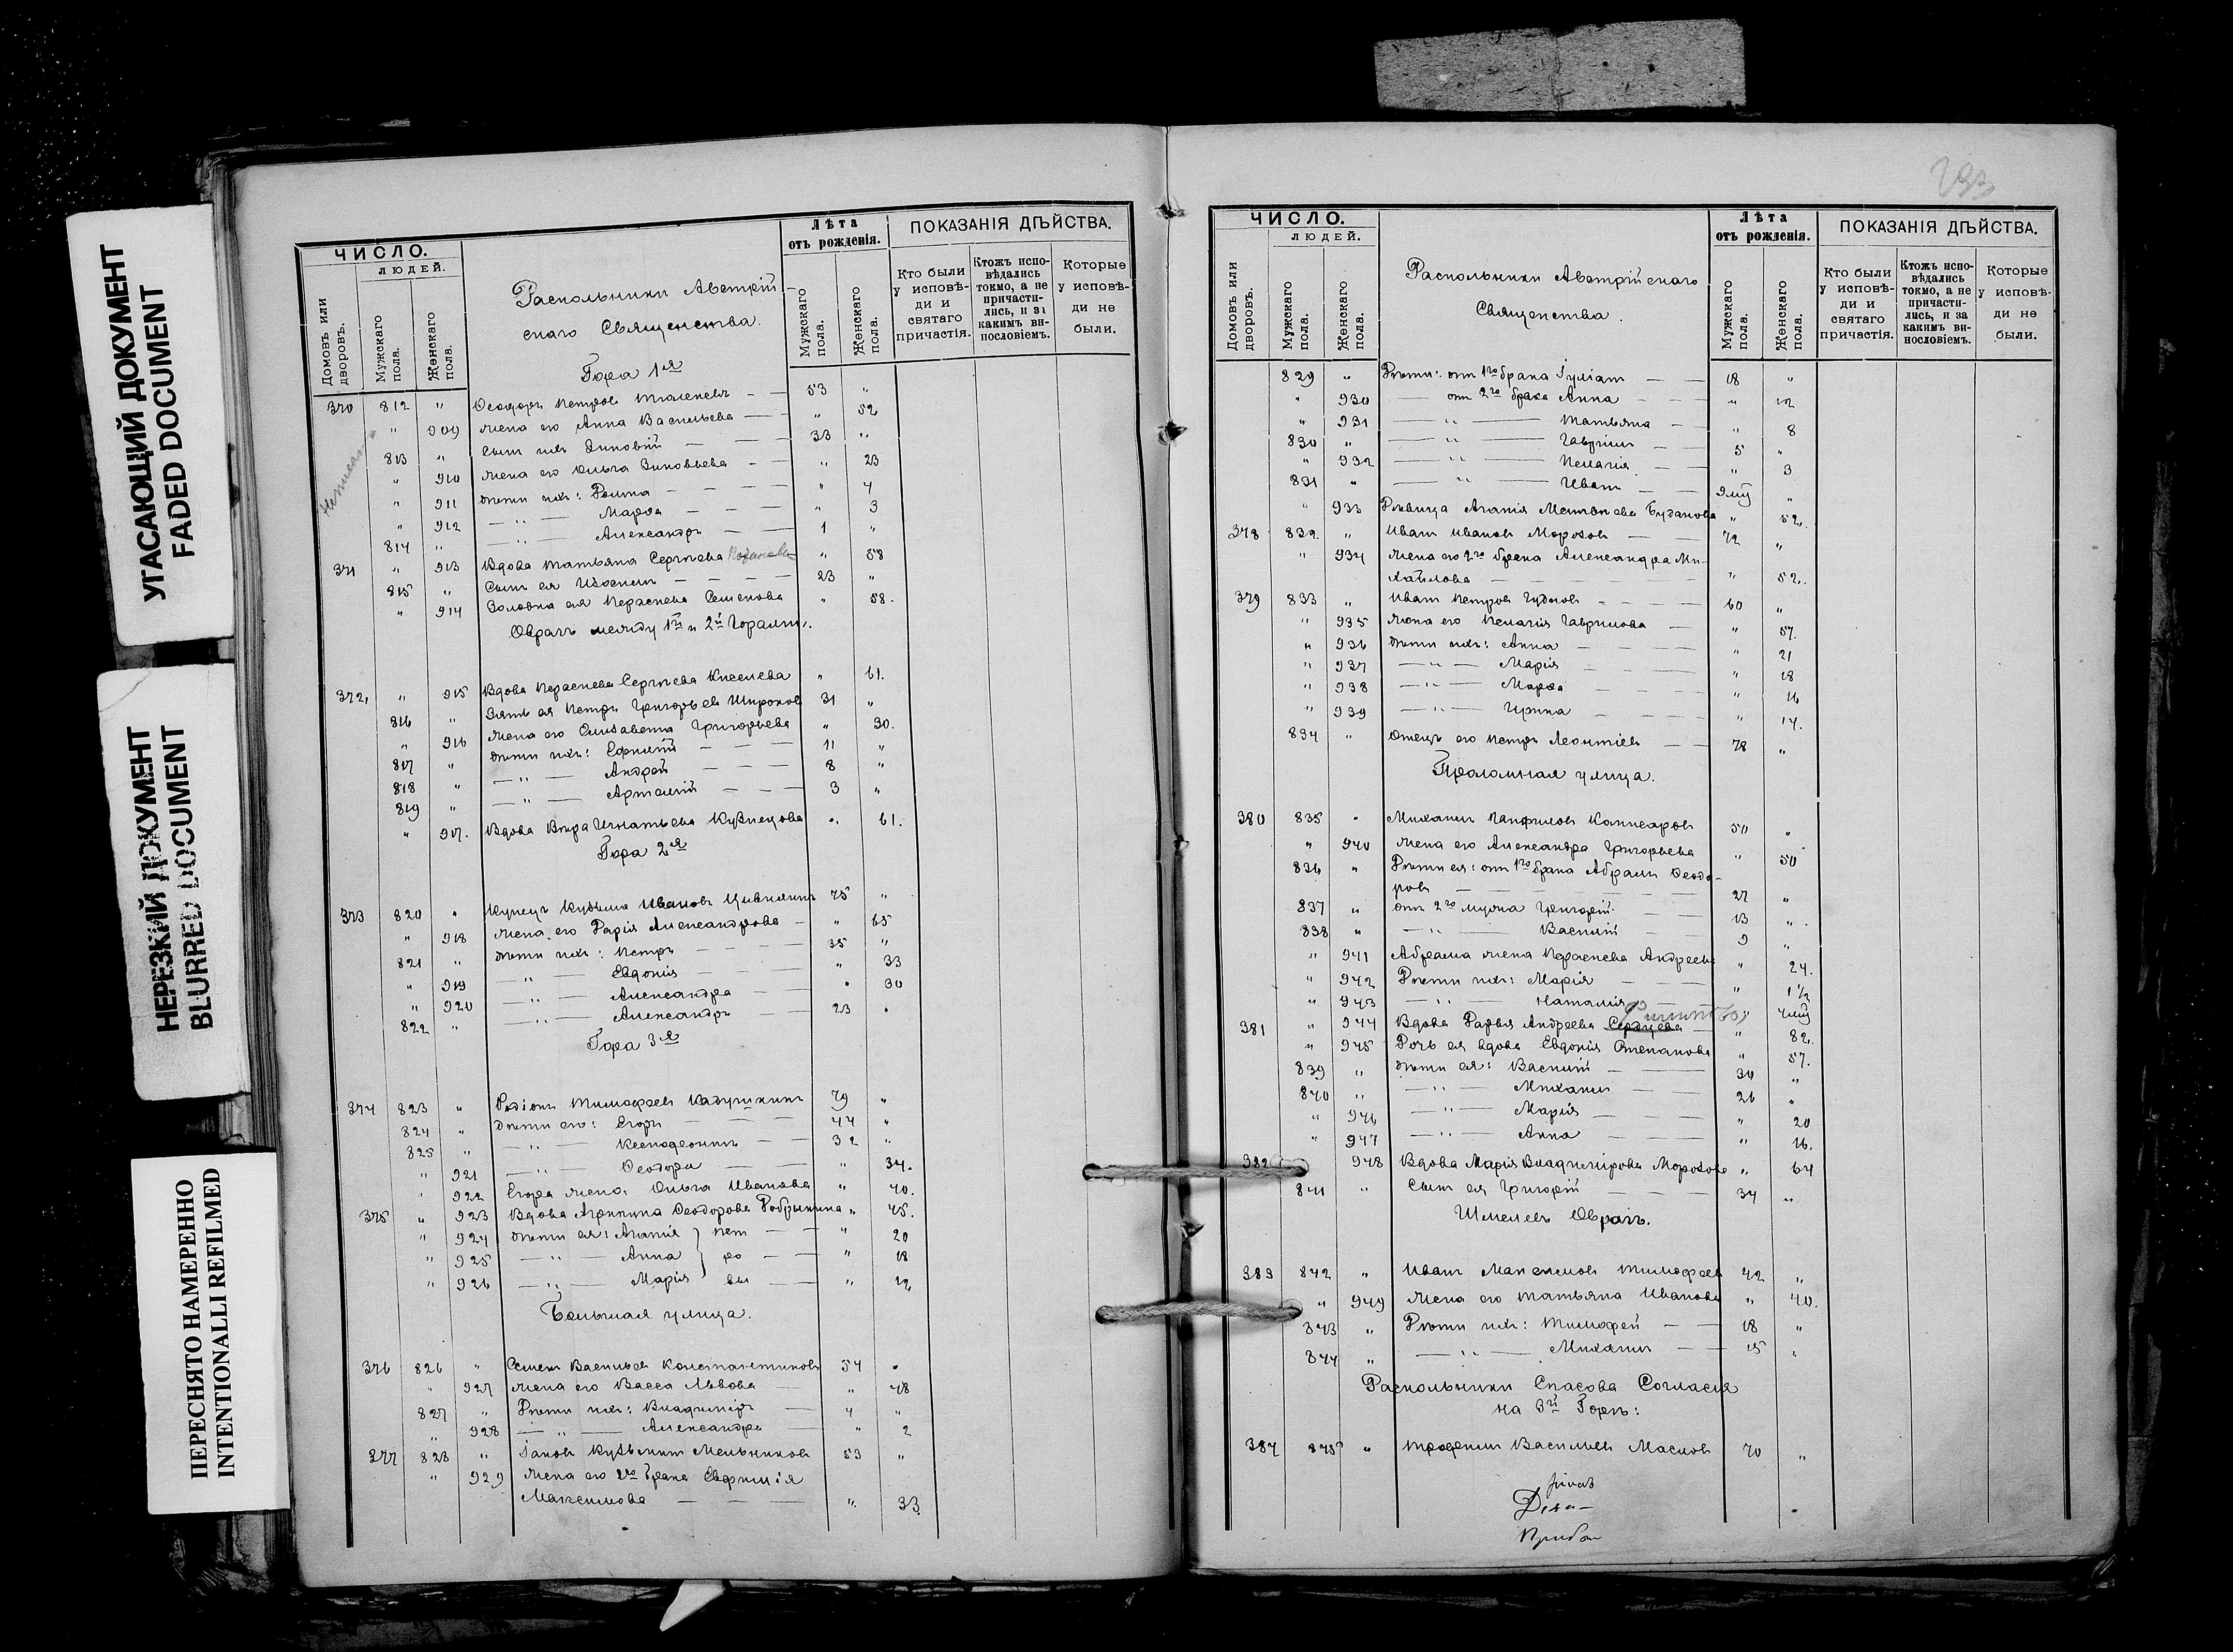 УГАСАЮЩИЙ ДОКУМЕНТ
FADED DOCUMENT
НЕРЕЗКИЙ ДОКУМЕНТ
BLURRED DOCUMENT
ПЕРЕСНЯТО НАМЕРЕННО
INTENTIONALLI REFILMED
ЧИСЛО.
ЛЮДЕЙ.
Домовъ или дворовъ.
Мужскаго пола.
Женскаго пола.
Раскольники Австрій-
скаго Священства.
Лѣта
отъ рожденія.
Мужскаго пола.
Женскаго пола.
ПОКАЗАНІЯ ДѢЙСТВА.
Кто были у исповѣди и святаго причастія.
Ктожъ исповѣдались токмо, а не причастились, и за какимъ винословіемъ.
Которые у исповѣди не были.
Гора 1я
370 812 " Ѳеодоръ Петровъ Тюленевъ - - 53 "
" 909 Жена его Анна Васильева - - " 52
813 " Сынъ ихъ Зиновій - - 33 "
" 910 Жена его Ольга Зиновьева - - " 23
" 911 Дѣти ихъ: - - " 4
" 912 - " - Марѳа - - " 3
814 " - " - Александръ - - 1 "
371 " 913 Вдова Татьяна Сергѣева " 58
815 " Сынъ ея - - 23 "
" 914 Золовка ея Параскева Семенова " 58.
Оврагъ между 1й и 2й Горами.
372. " 915 Вдова Параскева Сергѣева Киселева " 61.
816 " Зять ея Петръ Григорьевъ Широковъ 31 "
" 916 Жена его Елисавета Григорьева " 30.
817 " Дѣти ихъ: Ефимій - - 11 "
818 " - " - Андрей - - 8 "
819 " - " - Артемій - - 3 "
" 917. Вдова Вѣра Игнатьева Кузнецова " 61.
Гора 2я
373 820 " Купецъ Кузьма Ивановъ Цивилинъ 75 "
" 918 Жена его Дарія Александрова - " 65
821 " Дѣти ихъ: Петръ - - 35 "
" 919 - " - Евдокія - - " 33
" 920 - " - Александра - - " 30
822 " - " - Александръ - - 23 "
Гора 3я
374 823 " Родіонъ Тимофеевъ Кадушкинъ 79 "
824 " Дѣти его: Егоръ - - 44 "
825 " - " - Ксенофонтъ - - 32 "
" 921 - " - Ѳеодора - - " 34.
" 922 Егора жена Ольга Иванова " 40.
375 " 923 Вдова Агрипина Ѳеодорова Добрынина " 45.
" 924 Дѣти ея: Агапія - - " 20
" 925 - " - Анна - - " 18
" 926 - " - Марія - - " 12
Большая улица.
376 826 " Семенъ Васильевъ Константиновъ 54 "
" 927 Жена его Васса Львова - " 48
827 " Дѣти ихъ: Владиміръ - 4 "
" 928 - " - Александра - " 2
377 828 " Іаковъ Кузьминъ Мельниковъ 53 "
" 929 Жена его 2го брака Евфимія
Максимова - - - " 33
ЧИСЛО.
ЛЮДЕЙ.
Домовъ или дворовъ.
Мужскаго пола.
Женскаго пола.
Раскольники Австрійскаго
Священства.
Лѣта
отъ рожденія.
Мужскаго пола.
Женскаго пола.
ПОКАЗАНІЯ ДѢЙСТВА.
Кто были у исповѣди и святаго причастія.
Ктожъ исповѣдались токмо, а не причастились, и за какимъ винословіемъ.
Которые у исповѣди не были.
829 " Дѣти: отъ 1го брака Іуліанъ - - 18 "
" 930 - отъ 2го брака Анна - - " 12
" 931 - " - Татьяна - - " 8
830 " - " - Гавріилъ - - 5 "
" 932 - " - Пелагія - - " 3
831 " - " - Иванъ - - "
" 933 Дѣвица Агапія Буданова " 52.
378 832 " Иванъ Ивановъ Морозовъ - - 72 "
" 934 Жена его 2го брака Александра Ми-
хайлова - - - " 52.
379 833 " Иванъ Петровъ Гудковъ - - 60 "
" 935 Жена его Пелагія Гаврилова - " 57.
" 936 Дѣти ихъ: Анна - - " 21
" 937 - " - Марія - - " 18
" 938 - " - Марѳа - - " 16
" 939 - " - Ирина - - " 14.
834 " Отецъ его Петръ Леонтіевъ - - 78 "
Проломная улица.
380 835 " Михаилъ Панфиловъ Комисаровъ 50 "
" 940 Жена его Александра Григорьева " 50
836 " Дѣти ея: отъ 1го брака Абрамъ Ѳеодо-
ровъ - - - 27 "
837 " отъ 2го мужа Григорій - - 13 "
838 " - " - Василій - - 9 "
" 941 Абрама жена Параскева Андреева " 24.
" 942 Дѣти ихъ: Марія - - " 1½
" 943 - " - Наталія - "
381 " 944 Вдова Дарья Андреева " 82.
" 945 Дочь ея вдова Евдокія Степанова " 57.
839 " Дѣти ея: Василій - - 30 "
840 " - " - Михаилъ - - 26 "
" 946 - " - Марія - - " 20
" 947 - " - Анна - - " 16.
382 948 Вдова Марія Владимірова Морозова " 64
841 " Сынъ ея Григорій - - 34 "
Шмелевъ Оврагъ.
383 842 " Иванъ Максимовъ Тимофеевъ 42 "
" 949 Жена его Татьяна Иванова " 40.
843 " Дѣти ихъ: Тимофей - - 18 "
844 " - " - Михаилъ - - 15 "
Раскольники Спасова Согласія
на 3й Горѣ:
384 845 " Трофимъ Васильевъ Масловъ 70 "